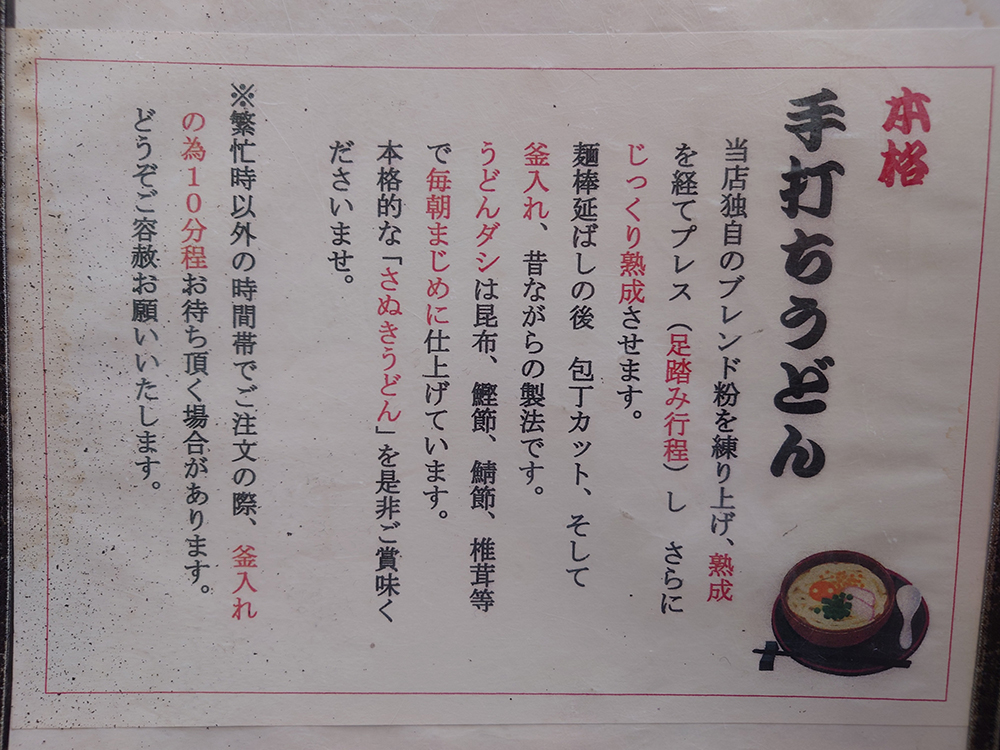 本格
手打ちうどん
当店独自のブレンド粉を練り上げ、熟成
を経てプレス（足踏み行程）し　さらに
じっくり熟成させます。
麺棒延ばしの後　包丁カット、そして
釜入れ、昔ながらの製法です。
うどんダシは昆布、鰹節、鯖節、椎茸等
で毎朝まじめに仕上げています。
本格的な「さぬきうどん」を是非ご賞味く
ださいませ。
※繁忙時以外の時間帯でご注文の際、釜入れ
の為１０分程お待ち頂く場合があります。
どうぞご容赦お願いいたします。